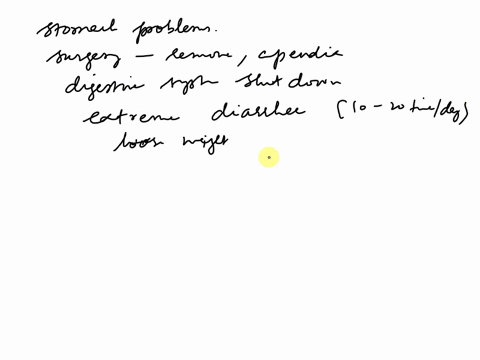 stomach problems.
surgery — remove, apendix
digestive system shut down
extreme diarrhea (10-20 time/day)
loose weight